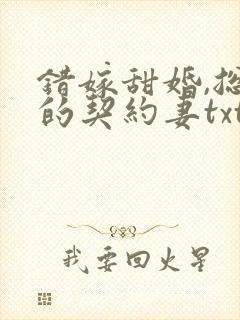 错嫁甜婚,总
的契约妻txt
我要回火星